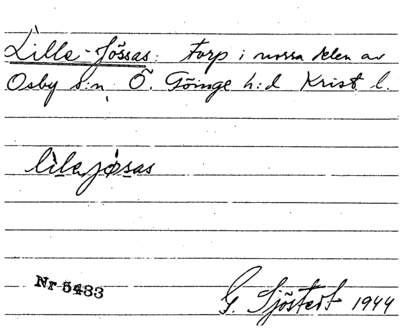 Lilla-Jössas: Torp i norra delen av
Osby s:n, Ö. Göinge h:d Krist l.
lìla jösas
Nr 5483
G. Sjöstedt 1944